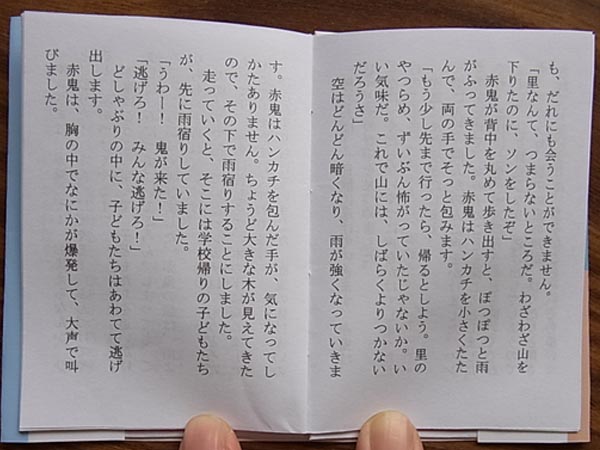 も、だれにも会うことができません。
「里なんて、つまらないところだ。わざわざ山を
下りたのに、ソンをしたぞ」
赤鬼が背中を丸めて歩き出すと、ぽつぽつと雨
がふってきました。赤鬼はハンカチを小さくたた
んで、両の手でそっと包みます。
「もう少し先まで行ったら、帰るとしよう。里の
やつらめ、ずいぶん怖がっていたじゃないか。い
い気味だ。これで山には、しばらくよりつかない
だろうさ」
空はどんどん暗くなり、雨が強くなっていきま
す。赤鬼はハンカチを包んだ手が、気になってし
かたありません。ちょうど大きな木が見えてきた
ので、その下で雨宿りすることにしました。
走っていくと、そこには学校帰りの子どもたち
が、先に雨宿りしていました。
「うわー！　鬼が来た！」
「逃げろ！　みんな逃げろ！」
どしゃぶりの中に、子どもたちはあわてて逃げ
出します。
赤鬼は、胸の中でなにかが爆発して、大声で叫
びました。